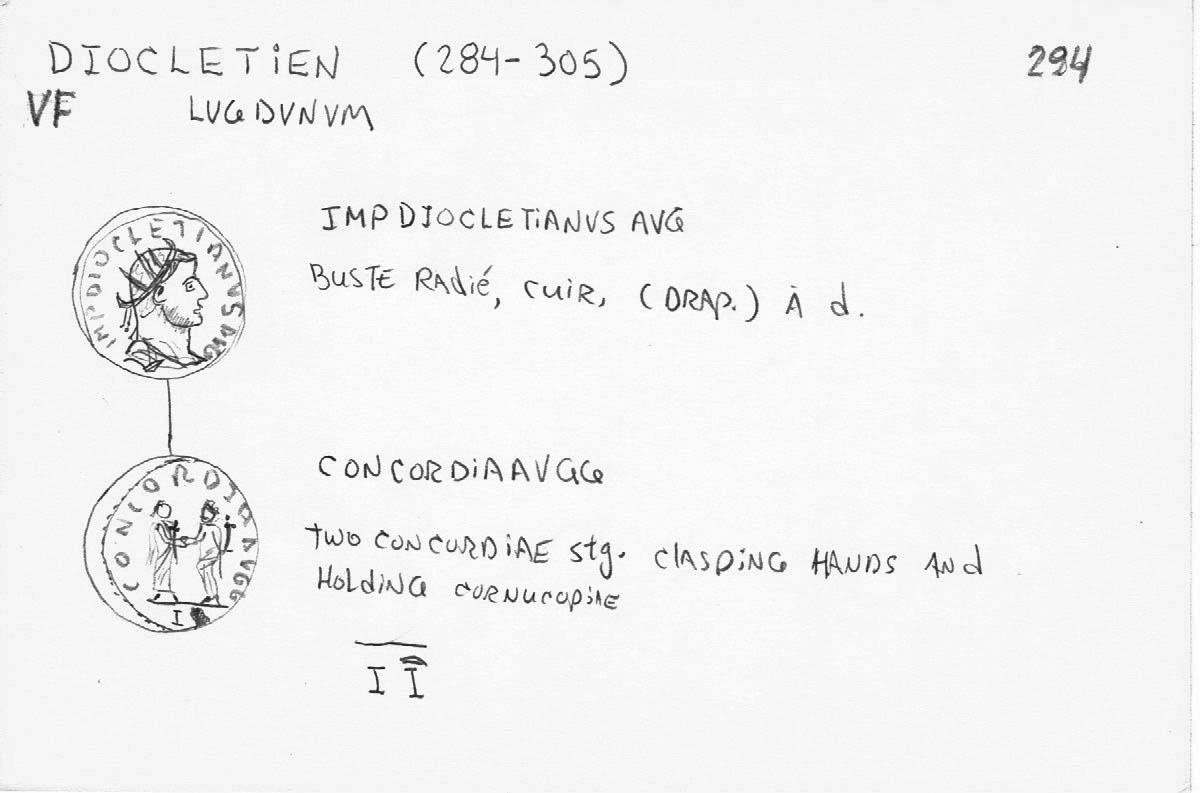 DIOCLETIEN (284-305) 294
VF LUGDVNVM
IMP DIOCLETIANVS AVG
BUSTE RAdié, CUIR, (DRAP.) À d.
IMPDIOCLETIANVSAVG
CONCORDIAAVGG
TWO CONCORDIAE stg. CLASPING HANDS AND
HOLDING CORNUCOPIAE
CONCORDIAAVGG
I
I I